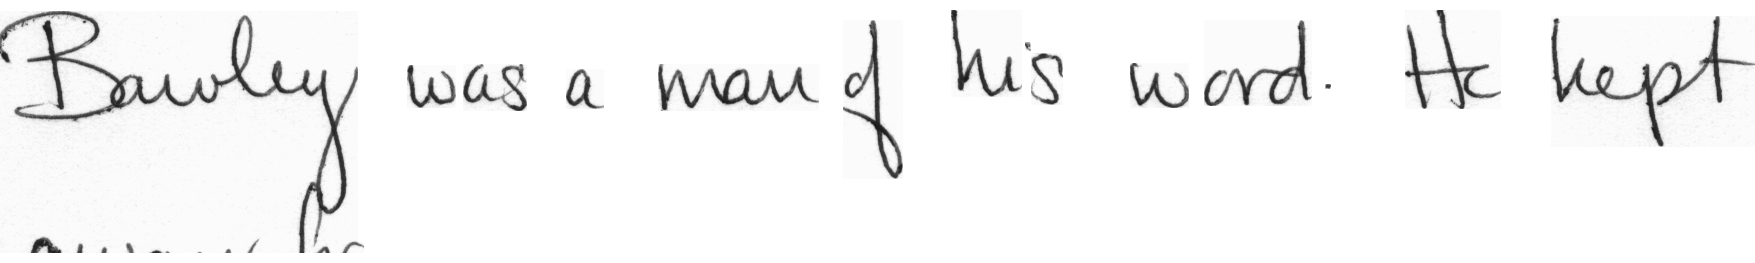 Bawley was a man of his word. He kept